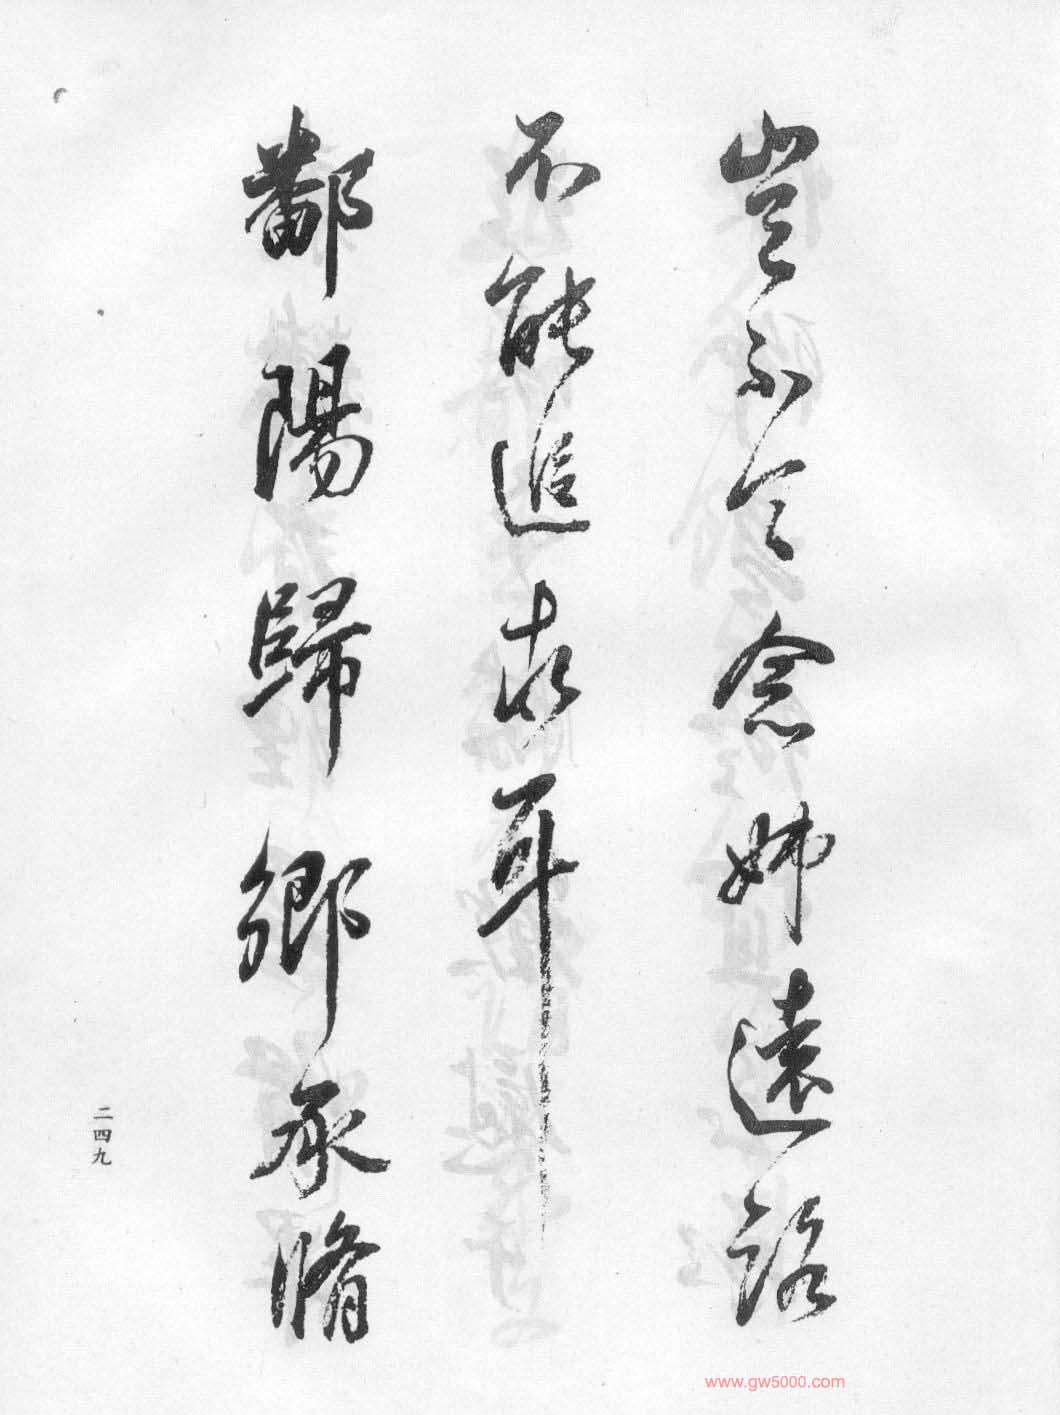 豈不令念姊遠路
不能追求耳
鄱陽歸鄉承脩
二四九
www.gw5000.com